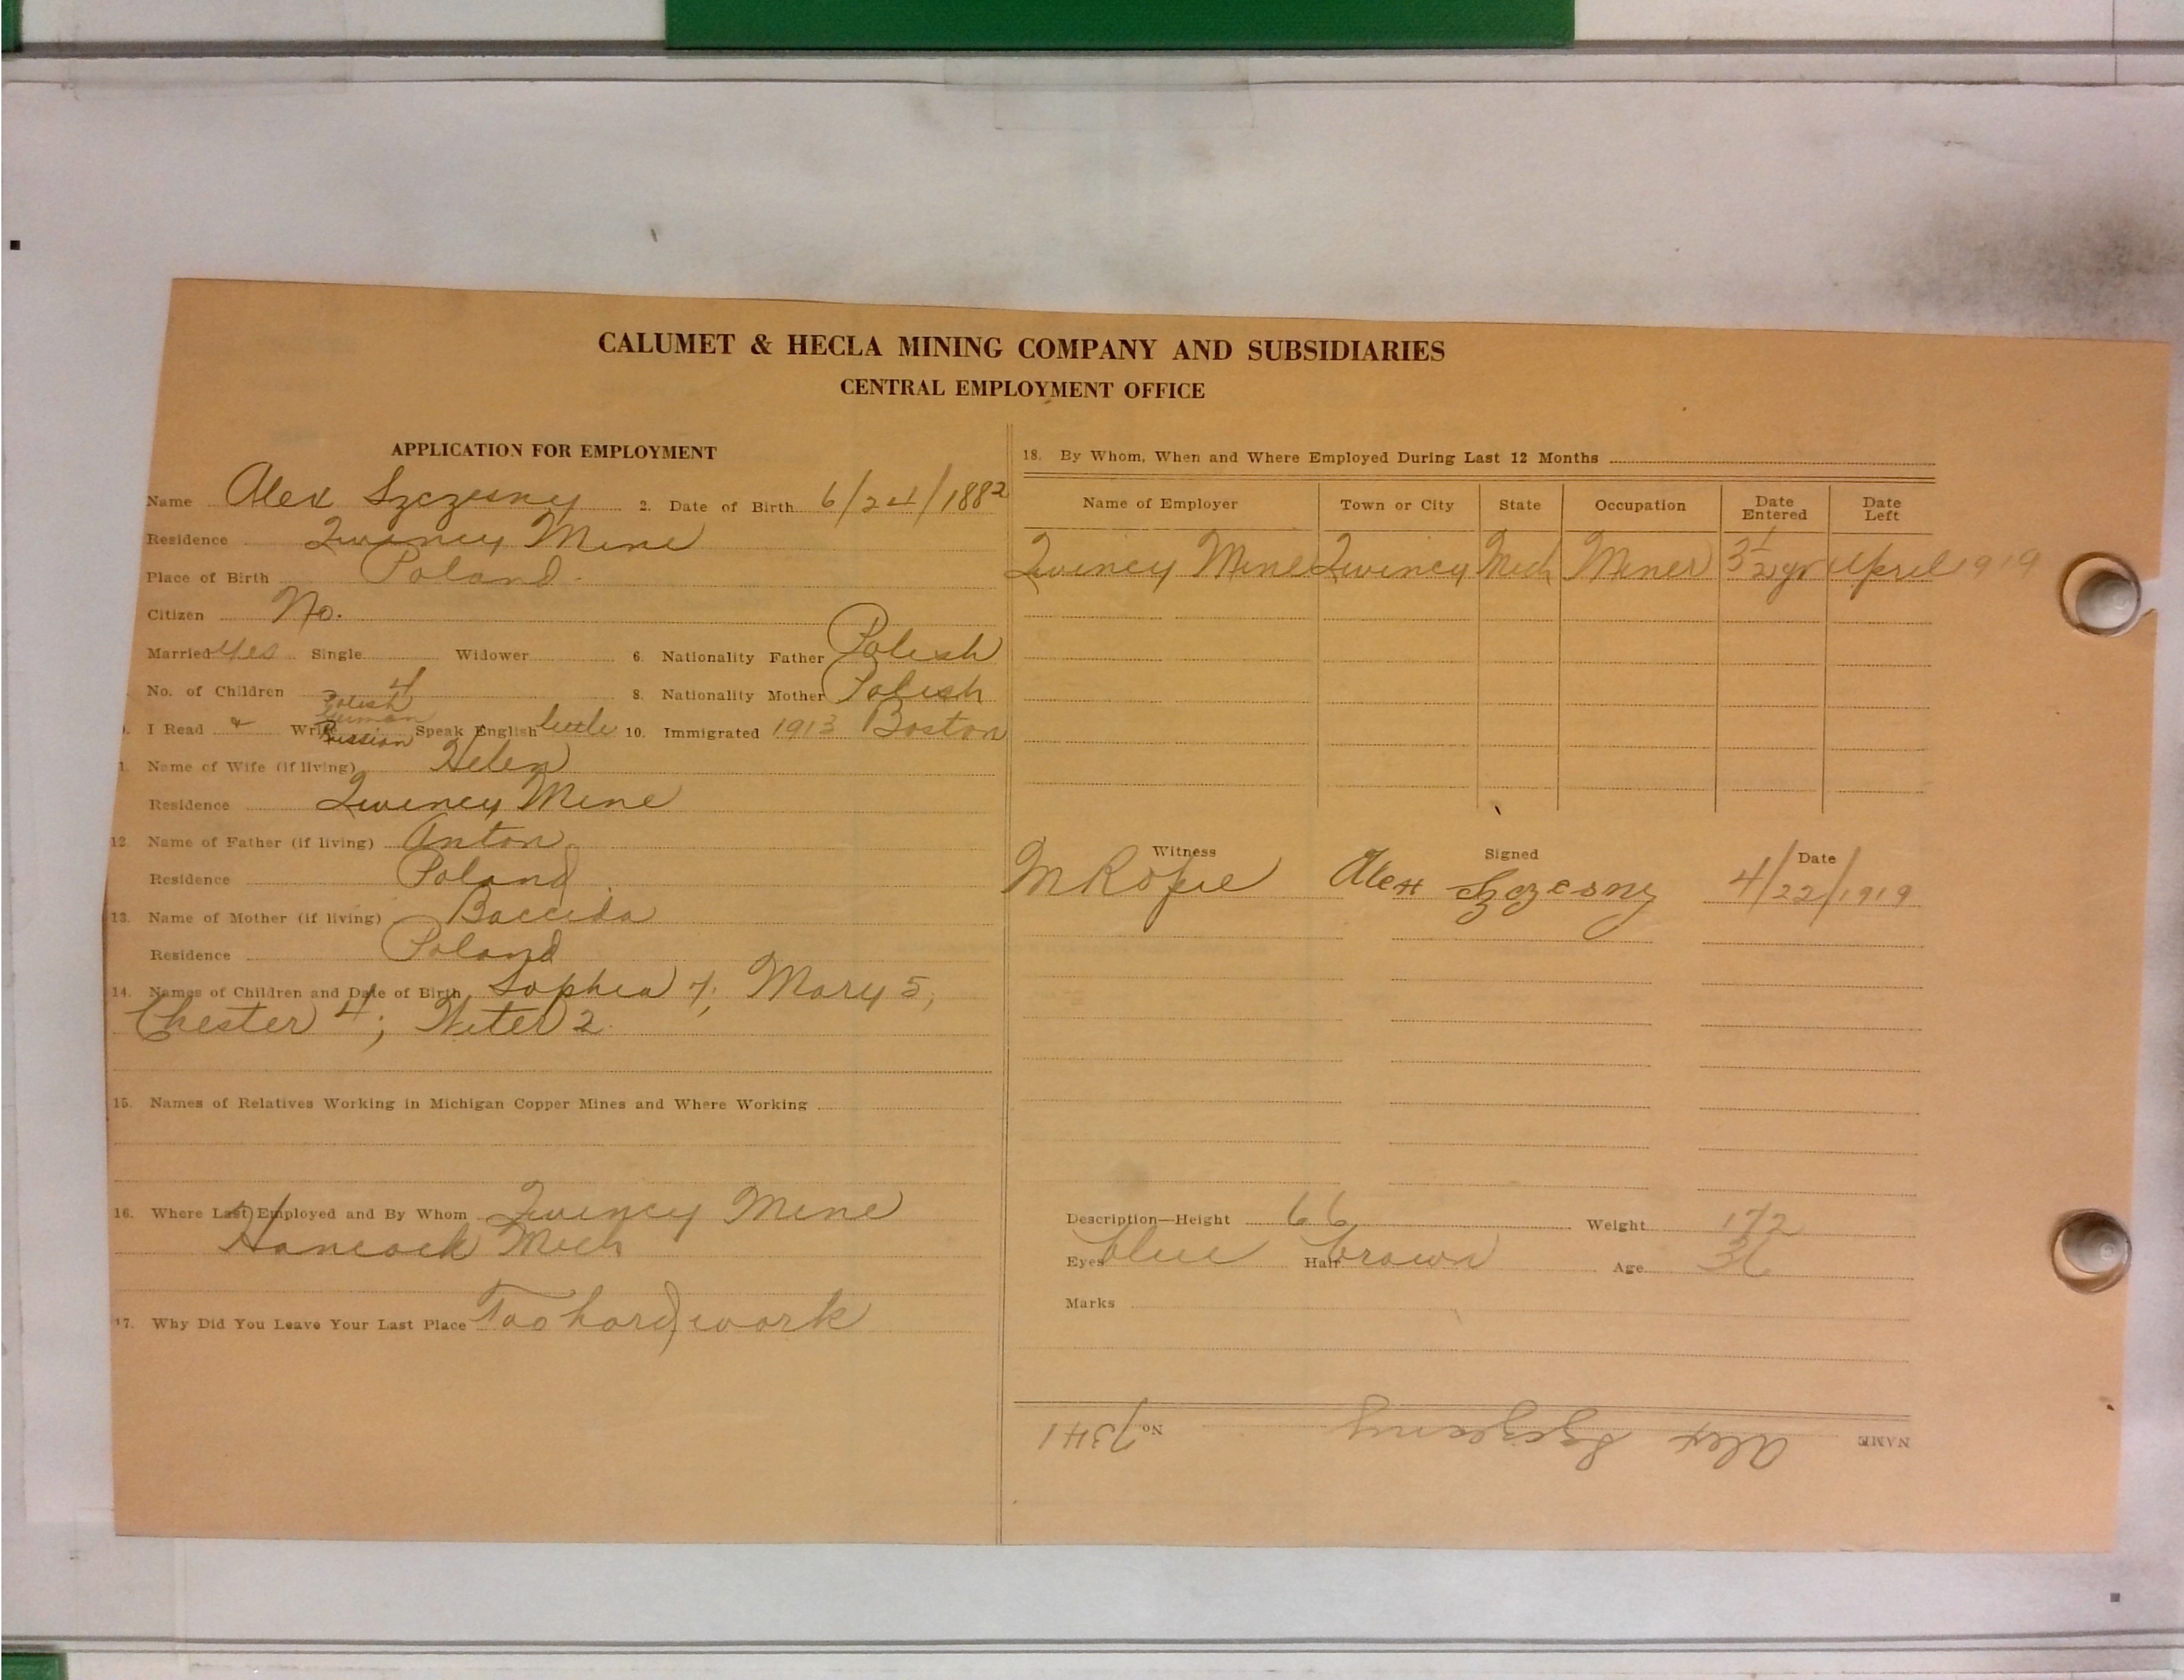 CALUMET & HECLA MINING COMPANY AND SUBSIDIARIES
CENTRAL EMPLOYMENT OFFICE
APPLICATION FOR EMPLOYMENT
Name Alex Szczesny 2. Date of Birth 6/24/1882
Residence Quincy Mine
Place of Birth Poland
Citizen No.
Married yes Single Widower 6. Nationality Father Polish
No. of Children 4 8. Nationality Mother Polish
Polish
German
I Read & Write Russian Speak English little 10. Immigrated 1913 Boston
1. Name of Wife (if living) Helen
Residence Quincy Mine
12 Name of Father (if living) Anton
Residence Poland
13. Name of Mother (if living)
Residence Poland
14. Names of Children and Date of Birth Sophia 7; Mary 5;
Chester 4; 2
15. Names of Relatives Working in Michigan Copper Mines and Where Working
16. Where Last Employed and By Whom Quincy Mine
Hancock Mich
17. Why Did You Leave Your Last Place Too hard work
18. By Whom, When and Where Employed During Last 12 Months
Name of Employer Town or City State Occupation Date Entered Date Left
Quincy Mine Quincy Mich Miner 3 1/2 yr April 1919
Witness Signed Date
Alex Szczesny 4/22/1919
Description—Height 66 Weight 172
Eyes blue Hair brown Age 36
Marks
NAME Alex Szczesny No 7341